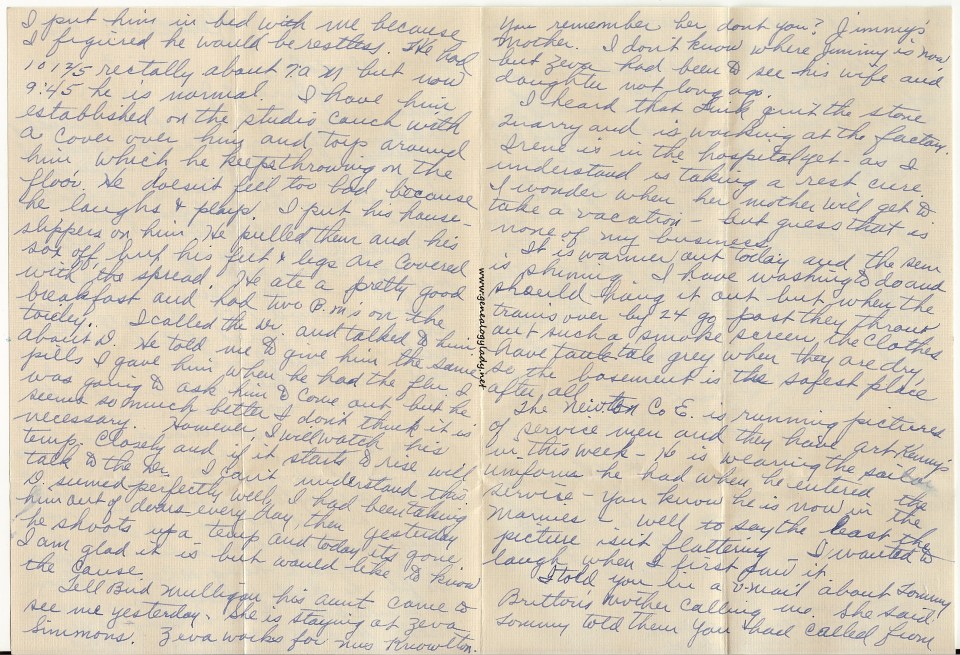 I put him in bed with me because
I figured he would be restless. He had
101 2/5 rectally about 7 a M but now
9:45 he is normal. I have him
established on the studio couch with
a cover over him and toys around
him which he keeps throwing on the
floor. He doesn't feel too bad because
he laughs & plays. I put his house-
slippers on him. He pulled them and his
sox off, but his feet & legs are covered
with the spread. He ate a pretty good
breakfast and had two B.m's on the
toidey. I called the Dr. and talked to him
about D. He told me to give him the same
pills I gave him when he had the flu. I
was going to ask him to come out but he
seemed so much better I don't think it is
necessary. However I will watch his
temp. closely and if it starts to rise will
talk to the Dr. I can't understand this,
D. seemed perfectly well, I had been taking
him out of doors every day, then yesterday
he shoots up a temp and today its gone.
I am glad it is but would like to know
the cause.
Tell Bud Mulligan his aunt came to
see me yesterday. She is staying at Zeva
Simmons. Zeva works for Mrs Knowlton.
You remember her dont you? Jimmy's
Mother. I don't know where Jimmy is now
but Zeva had been to see his wife and
daughter not long ago.
I heard that quit the stone
quarry and is working at the factory.
Irene is in the hospital yet - as I
understand is taking a rest cure
I wonder when her mother will get to
take a vacation - but guess that is
none of my business.
It is warmer out today and the sun
is shining. I have washing to do and
should hang it out but when the
trains over by 24 go past they throw
out such a smoke screen, the clothes
have tattle tale grey when they are dry
so the basement is the safest place
after all.
The Newton Co E. is running pictures
of service men and they have art Kenny's
in this week - He is wearing the sailor
uniform he had when he entered the
service - you know he is now in the
Marines - well to say the least the
picture isn't flattering - I wanted to
laugh when I first saw it.
I told you in a v-mail about Tommy
Britton's mother calling me. She said
Tommy told them you had called from
www.genealogylady.net